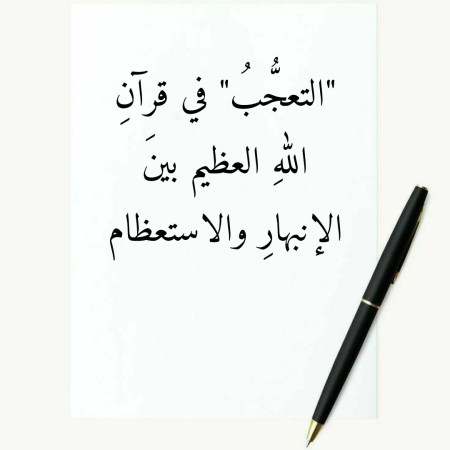 "التعجُّبُ" في قرآنِ
اللهِ العظيم بينَ
الإنبهارِ والاستعظام